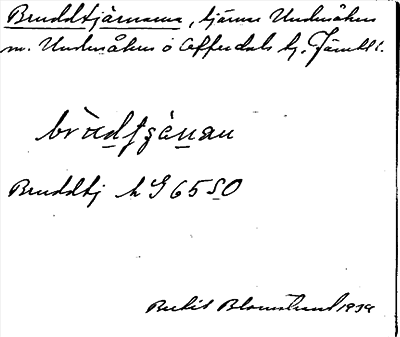 Bruddtjärnarna, tjärnar Undersåkers
sn. Undersåkers o Offerdals tg. Jämtl l.
brùdtjǽnan
Bruddtj h G 65 SO
Bertil Blomstrand 1939